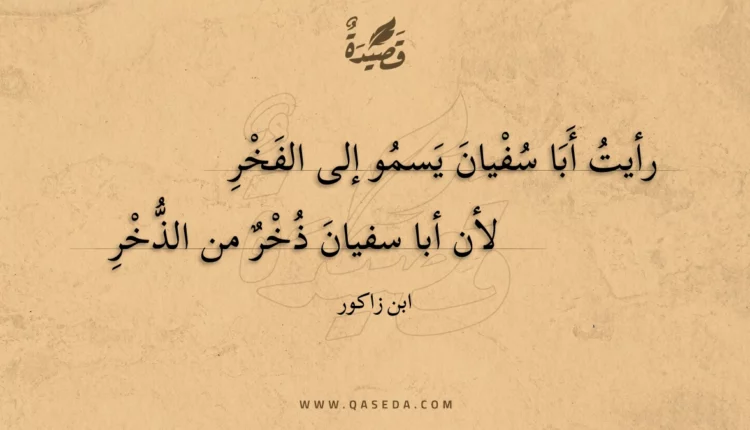 قَصِيْدَةٌ
رأيتُ أَبَا سُفْيانَ يَسمُو إلى الفَخْرِ
لأن أبا سفيانَ ذُخْرٌ من الذُّخْرِ
ابن زاكور
WWW.QASEDA.COM